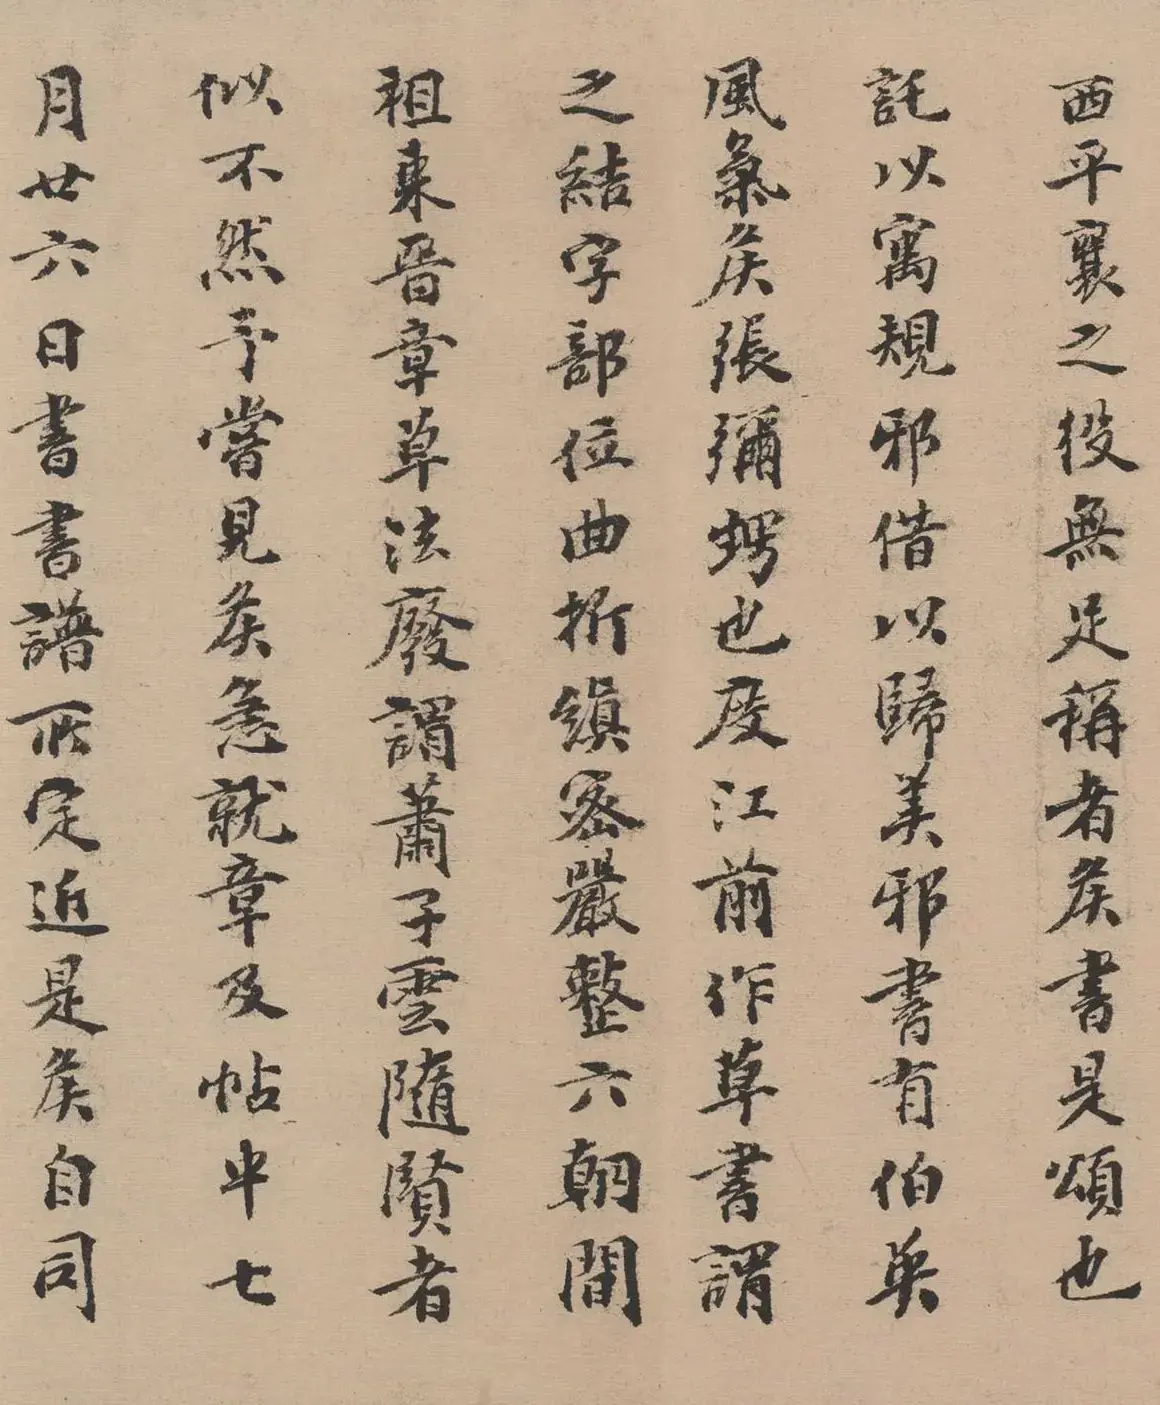 西平襄之役無足稱者矦書是頌也
託以寓規邪借以歸美邪書有伯英
風氣矦張彌愕也度江前作草書謂
之結字部位曲折縝密嚴整六朝間
祖東晉章草法廢謂蕭子雲隨賢者
似不然予嘗見矦急就章及帖中七
月廿六日書書譜所定近是矦自司